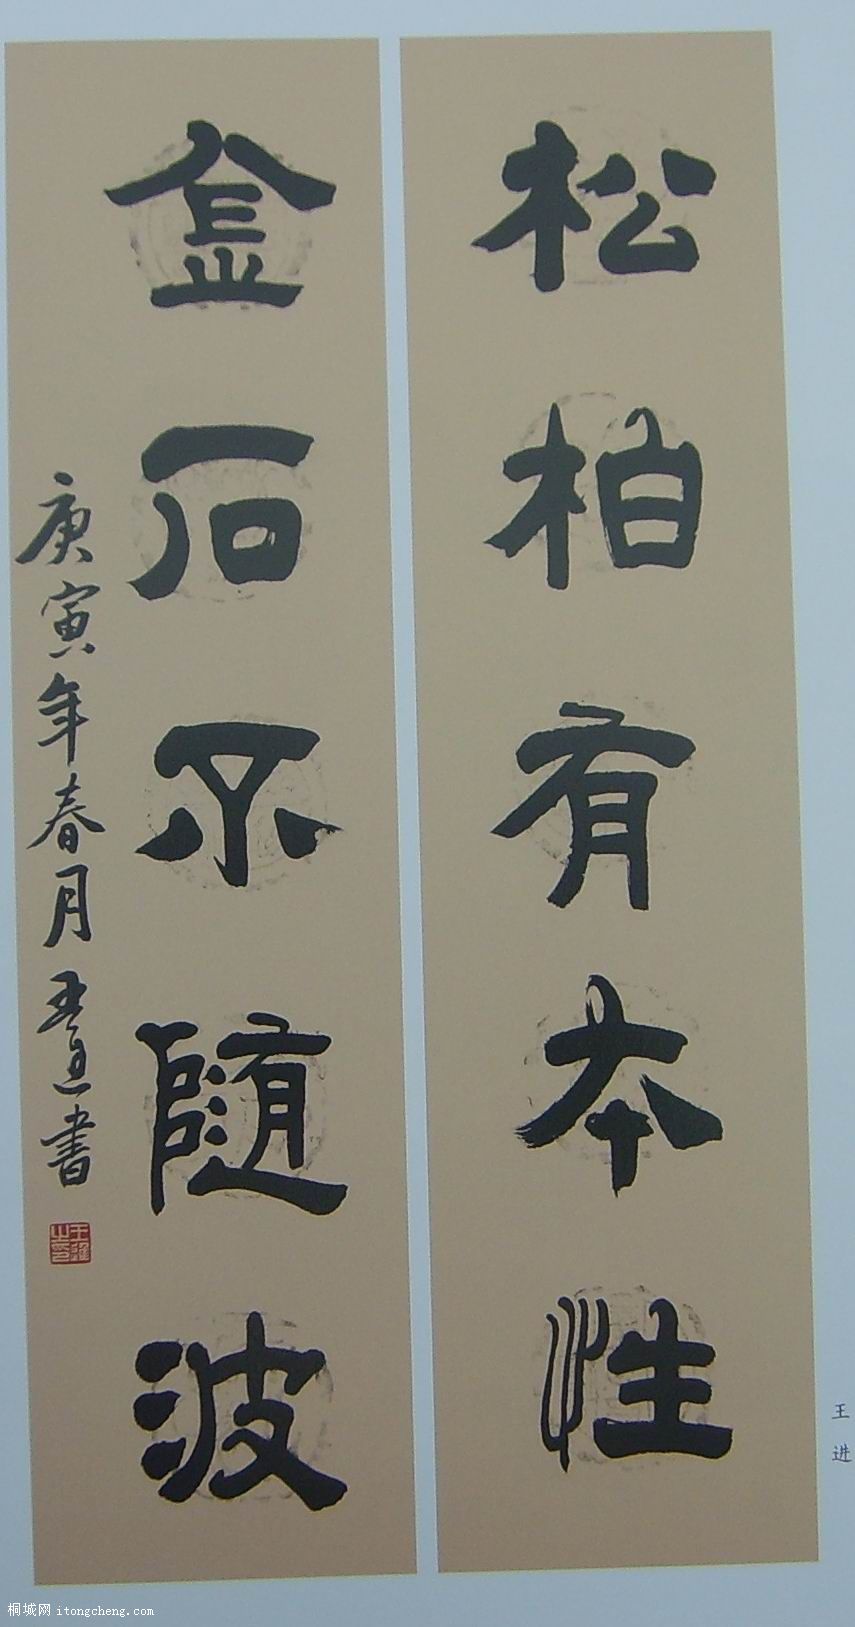 松柏有本性
金石不随波
庚寅年春月王進書
王進之印
王进
桐城网 itongcheng.com